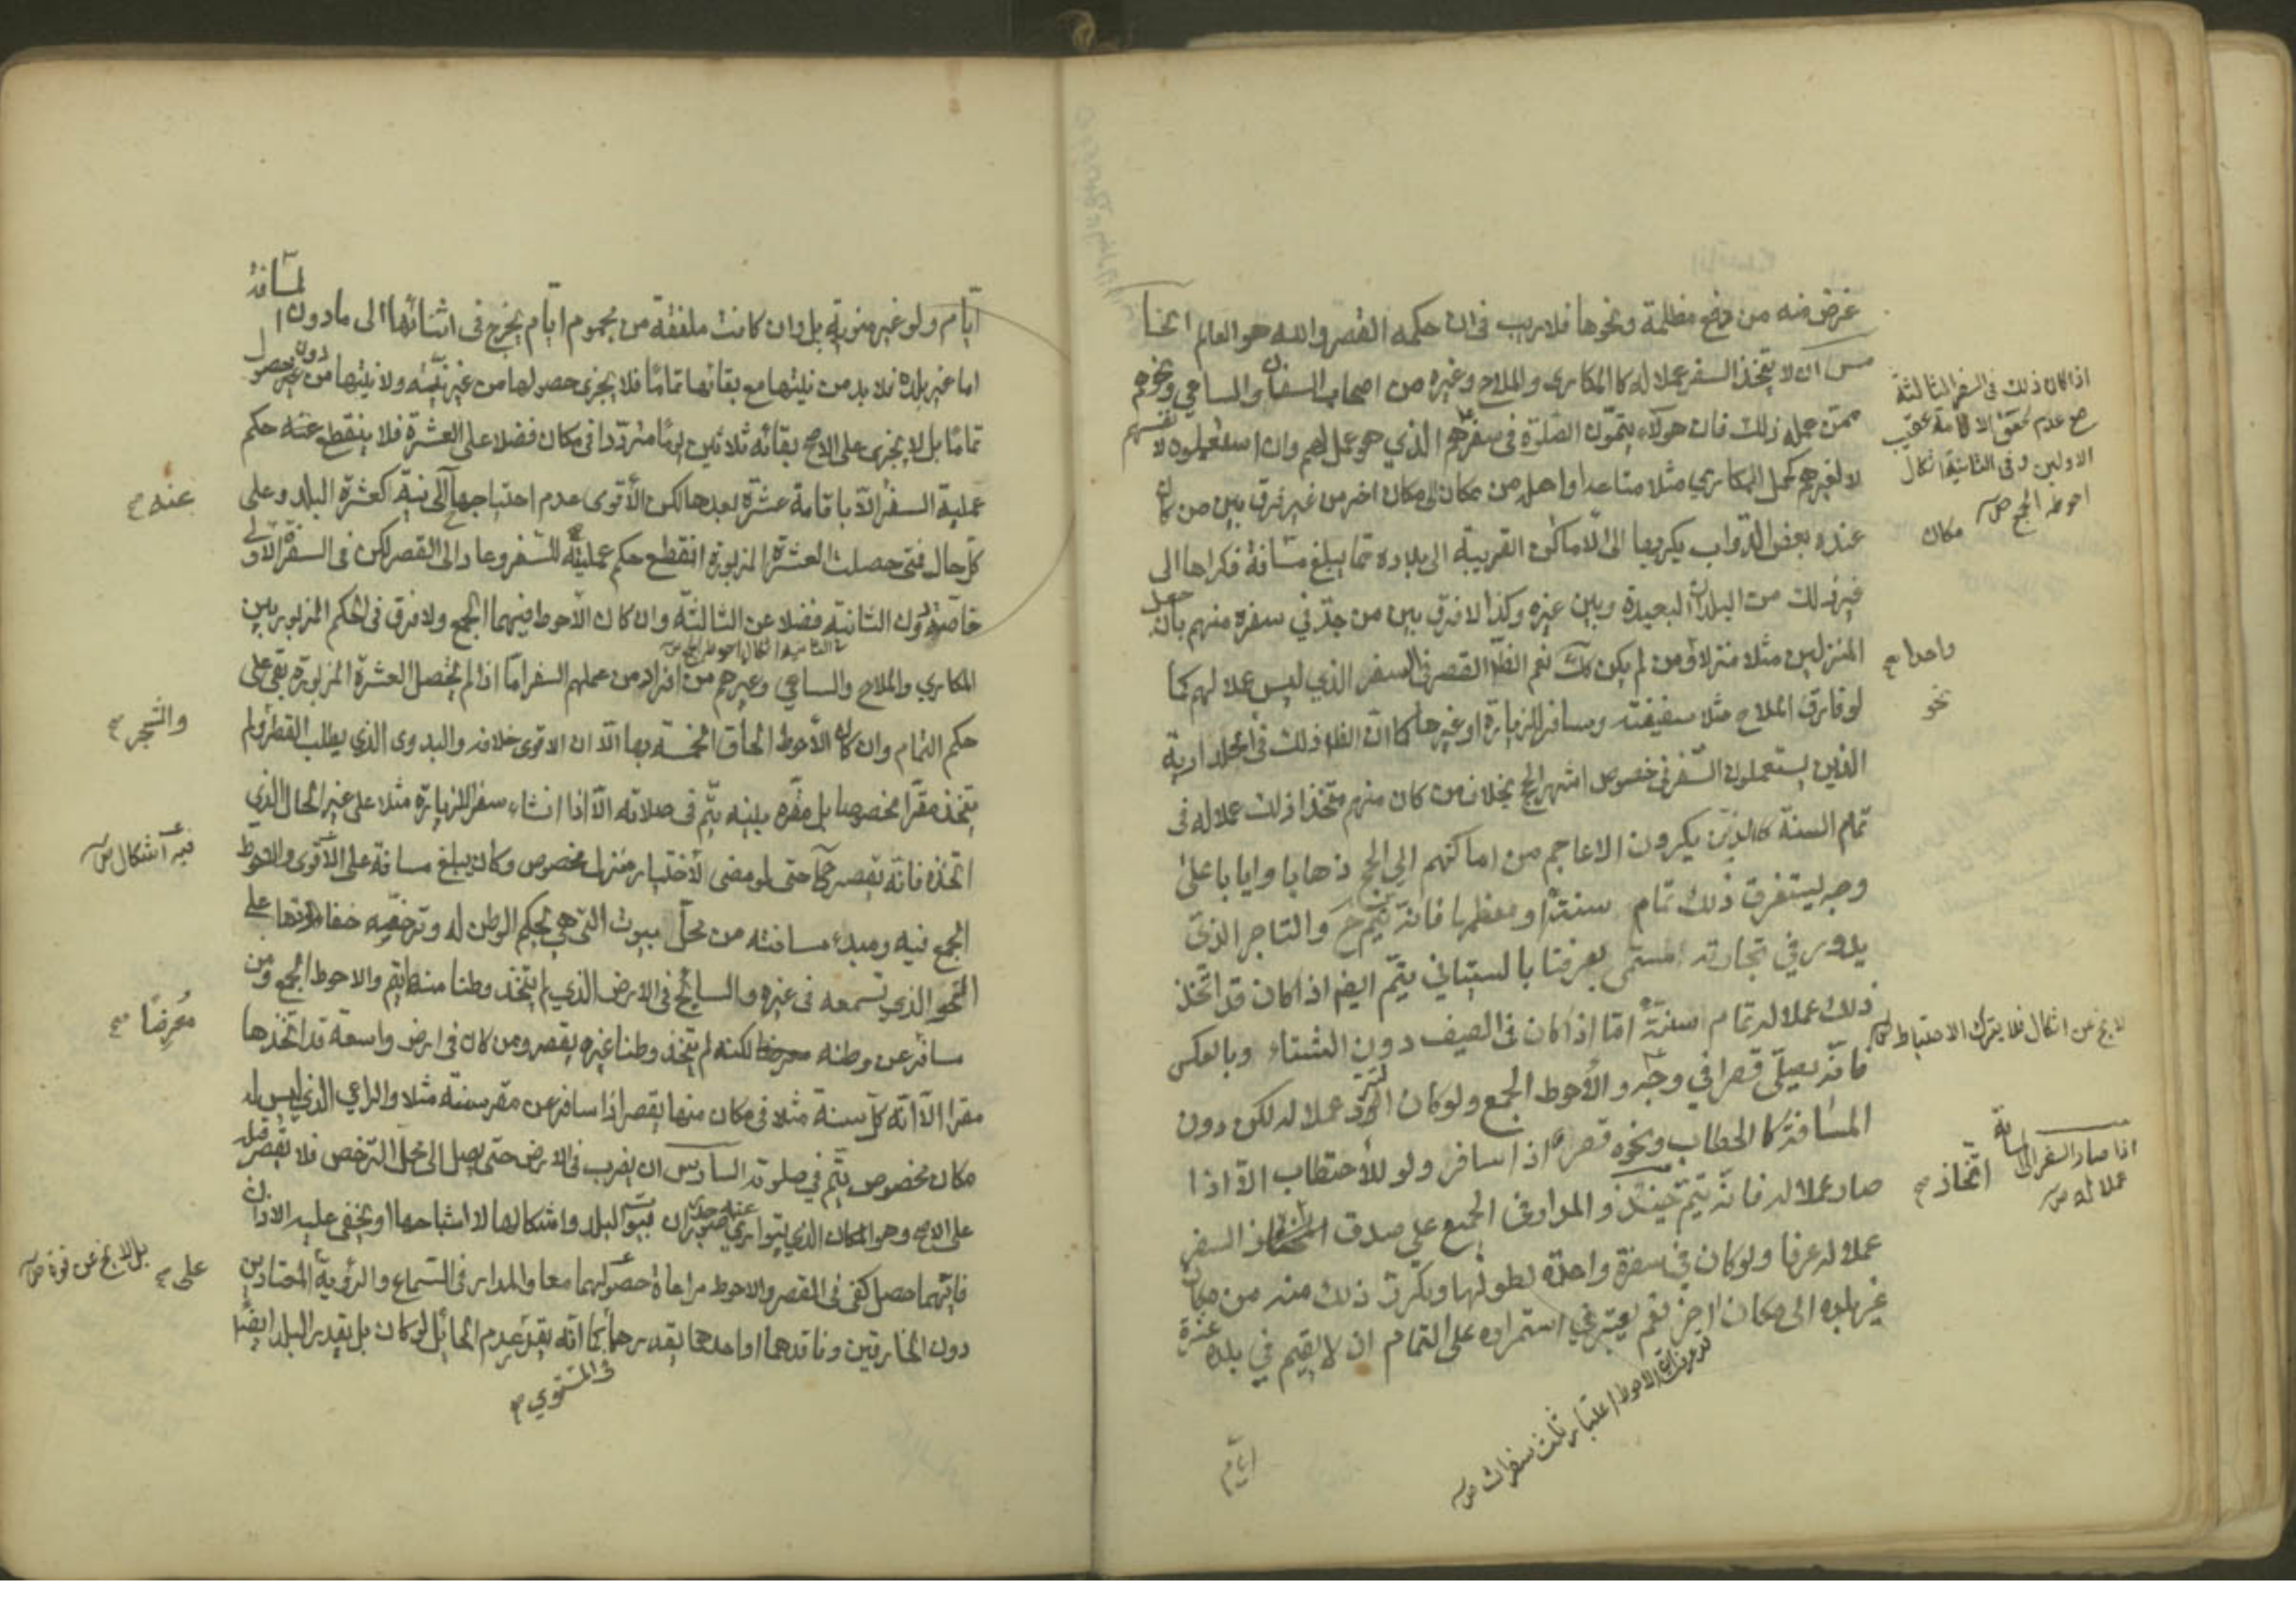 غرض منه من دفع مظلمة ونحوها فلا ريب في ان حكمه القصر والله هو العالم الخا
مس ان لا يتخذ السفر عملا له كالمكاري والملاح وغيره من اصحاب السفن والساعي ونحوهم
ممن عمله ذلك فان هؤلاء يتمون الصلوة في سفرهم الذي هو عمل لهم وان استعملوه لانفسهم
لا لغيرهم كحمل المكاري مثلا متاعه او اهله من مكان الى مكان اخر من غير فرق بين من كان
عنده بعض الدواب يكريها الى الاماكن القريبة الى بلاده مما يبلغ مسافة فكراها الى
غير ذلك من البلدان البعيدة وبين غيره وكذا لا فرق بين من جد في سفره منهم بان جعل
المنزلين مثلا منزلا ومن لم يكن كك نعم الظ القصر في السفر الذي ليس عملا لهم كما
لو فارق الملاح مثلا سفينته وسافر للزيارة او غيرها كما ان الظ ذلك في الجلدارية
الذين يستعملون السفر في خصوص اشهر الحج بخلاف من كان منهم متخذا ذلك عملا له في
تمام السنة كالذين يكرون الاعاجم من اماكنهم الى الحج ذهابا وايابا على
وجه يستغرق ذلك تمام سنته او معظمها فانه يتم ح والتاجر الذي
يدور في تجارته المسمى بعرفنا بالسبتاني يتم ايضا اذا كان قد اتخذ
ذلك عملا له تمام سنته اما اذا كان في الصيف دون الشتاء وبالعكس
فانه يصلي قصرا في وجه والاحوط الجمع ولو كان التردد عملا له لكن دون
المسافة كالحطاب ونحوه قصر اذا سافر ولو للاحتطاب الا اذا
صار عملا له فانه يتم حينئذ والمدار في الجميع على صدق اتخاذ السفر
عملا له عرفا ولو كان في سفرة واحدة لطولها وتكرر ذلك منه من مكان
غير بلده الى مكان اخر نعم يعتبر في استمراره على التمام ان لا يقيم في بلده عشرة
ايام
اذا كان ذلك في السفر الثالثة
مع عدم تحقق الاقامة عقيب
الاولين وفي الثانية اشكال
احوطه الجمع ص
مكان
واحدا صح
نحو
لا يخ من اشكال فلا يترك الاحتياط
اذا صار السفر الى المسافة
عملا له ص
اتخاذ صح
قد مر ان الاحوط اعتبار ثلث سفرات ص
ايام ولو غير منوية بل وان كانت ملفقة من مجموع ايام يخرج في اثنائها الى ما دون المسافة
اما غير بلده فلا بد من نيتها مع بقائها تماما فلا يجزي حصولها من غير نيته ولا نيتها من دون حصول
تماما بل لا يجزي على الاصح بقائه ثلاثين يوما مترددا في مكان فضلا على العشرة فلا ينقطع عنه حكم
عملية السفر الا باقامة عشرة بعدها لكن الاقوى عدم احتياجها الى نية كعشرة البلد وعلى
كل حال فمتى حصلت العشرة المزبورة انقطع حكم عملية السفر وعاد الى القصر لكن في السفرة الاولى
خاصة دون الثانية فضلا عن الثالثة وان كان الاحوط فيهما الجمع ولا فرق في الحكم المزبور بين
في الثانية اشكال احوطه الجمع ص
المكاري والملاح والساعي وغيرهم من افراد من عملهم السفر اما اذا لم يحصل العشرة المزبورة بقي على
حكم التمام وان كان الاحوط الحاق الخمسة بها الا ان الاقوى خلافه والبدوي الذي يطلب القطر ولم
يتخذ مقرا مخصوصا بل مقره بيته يتم في صلاته الا اذا انشاء سفرا للزيارة مثلا على غير الحال الذي
اتخذه فانه يقصر ح حتى لو مضى لاختيار منزل مخصوص وكان يبلغ مسافة على الاقوى والاحوط
الجمع فيه ومبدء مسافته من محل بيوت التي هي بحكم الوطن له وترخصه خفاء اذانها على
النحو الذي تسمعه في غيره والسايح في الارض الذي لم يتخذ وطنا منها يتم والاحوط الجمع ومن
سافر عن وطنه لكنه لم يتخذ وطنا غيره يقصر ومن كان في ارض واسعة قد اتخذها
مقرا الا انه كل سنة مثلا في مكان منها يقصر اذا سافر عن مقر سنته مثلا والراعي الذي ليس له
مكان مخصوص يتم في صلوته السادس ان يضرب في الارض حتى يصل الى محل الترخص فلا يقصر قبله
على الاصح وهو المكان الذي يتوارى عنه جدران بيوت البلد واشكالها لا اشباحها او يخفى عليه الاذان
فايهما حصل كفى في القصر والاحوط مراعاة حصولهما معا والمدار في السماع والرؤية المعتادين
دون الخارقين وفاقدهما او احدهما يقدرهما كما انه يقدر عدم الحائل لو كان بل يقدر البلد ايضا
في المستوي صح
عنه صح
والشجر صح
فيه اشكال ص
معرضا صح
على صح
بل لا يخ عن قوة ص